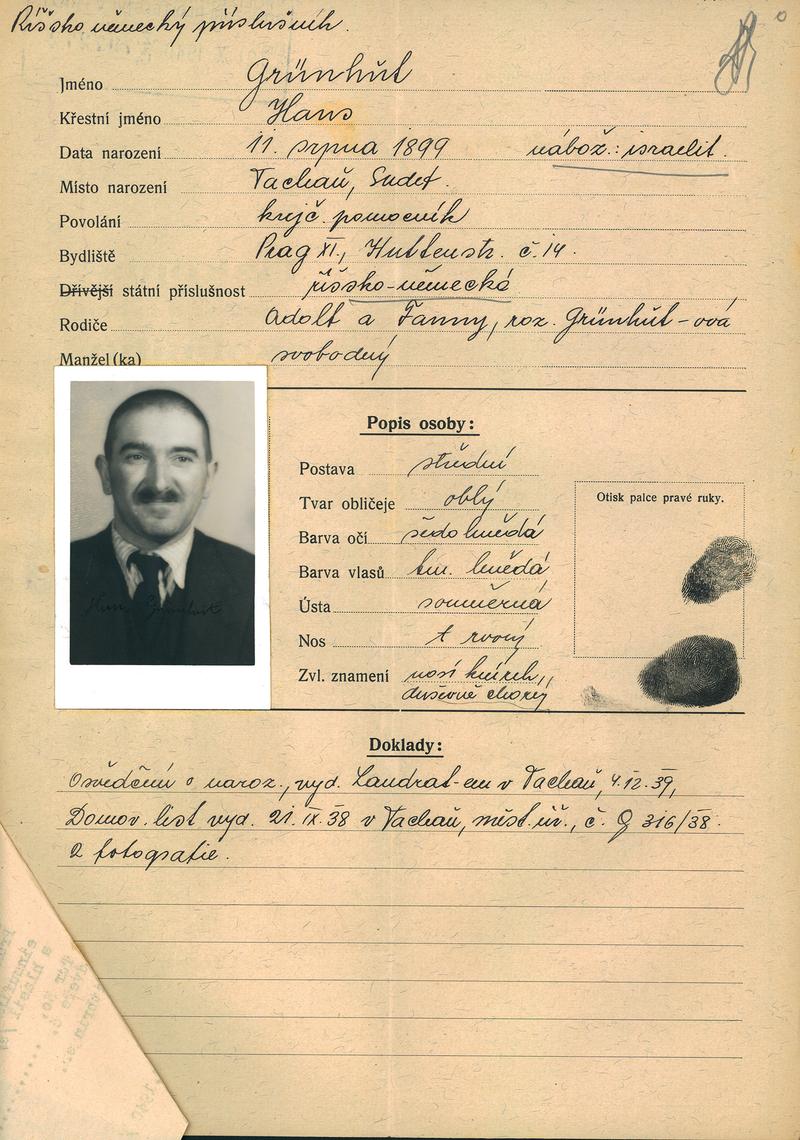 Říšsko německý příslušník.
Jméno Grünhut
Křestní jméno Hans
Data narození 11. srpna 1899 nábož.: israelit.
Místo narození Tachau, Sudet.
Povolání krejč. pomocník
Bydliště Prag XI., Huttenstr. č. 14.
Dřívější státní příslušnost říšsko-německá
Rodiče Adolf a Fanny, roz. Grünhut-ová
Manžel(ka) svobodný
Popis osoby:
Postava střední
Tvar obličeje oblý
Otisk palce pravé ruky.
Barva očí šedo hnědá
Barva vlasů tm. hnědá
Ústa souměrná
Nos rovný
Zvl. znamení nosí knírek,
duševně chorý
Doklady:
Osvědčení o naroz., vyd. Landrat-em v Tachau, 4.12.39,
Domov. list vyd. 21.IX.38 v Tachau, měst. úř., č. 316/38.
2 fotografie.